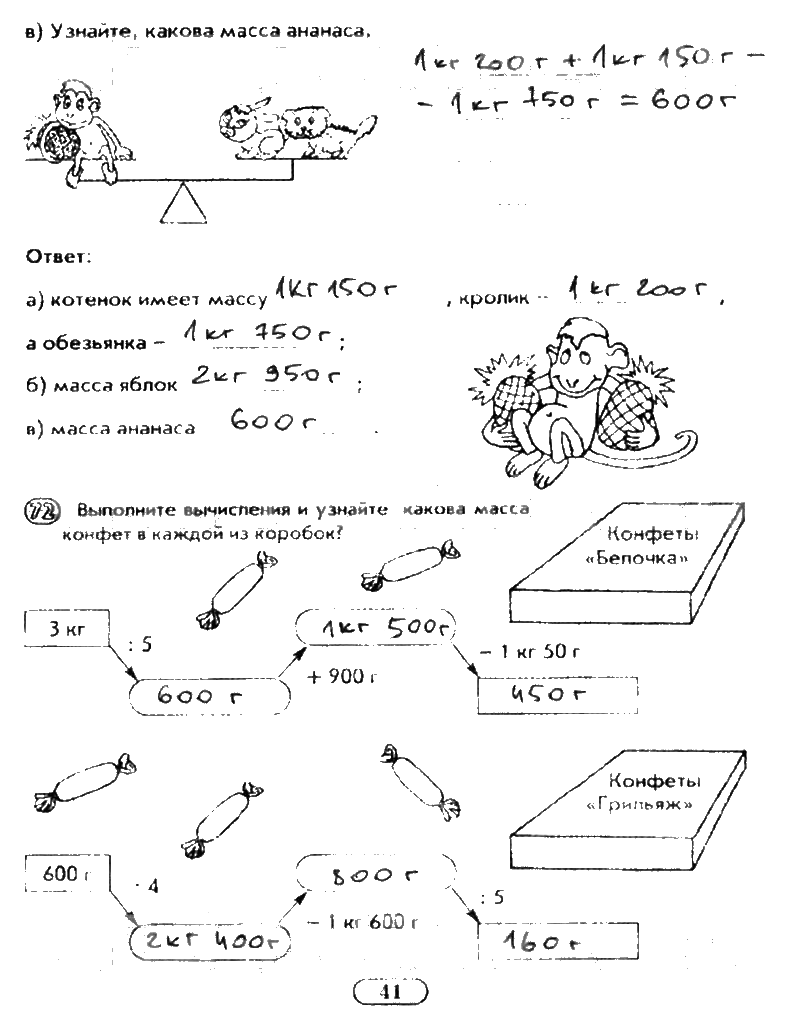 в) Узнайте, какова масса ананаса.
1 кг 200 г + 1 кг 150 г –
– 1 кг 750 г = 600 г
Ответ:
а) котенок имеет массу 1 кг 150 г , кролик – 1 кг 200 г ,
а обезьянка – 1 кг 750 г ;
б) масса яблок 2 кг 950 г ;
в) масса ананаса 600 г .
72 Выполните вычисления и узнайте какова масса
конфет в каждой из коробок?
Конфеты
«Белочка»
3 кг
: 5
600 г
+ 900 г
1 кг 500 г
– 1 кг 50 г
450 г
Конфеты
«Грильяж»
600 г
· 4
2 кг 400 г
– 1 кг 600 г
800 г
: 5
160 г
41